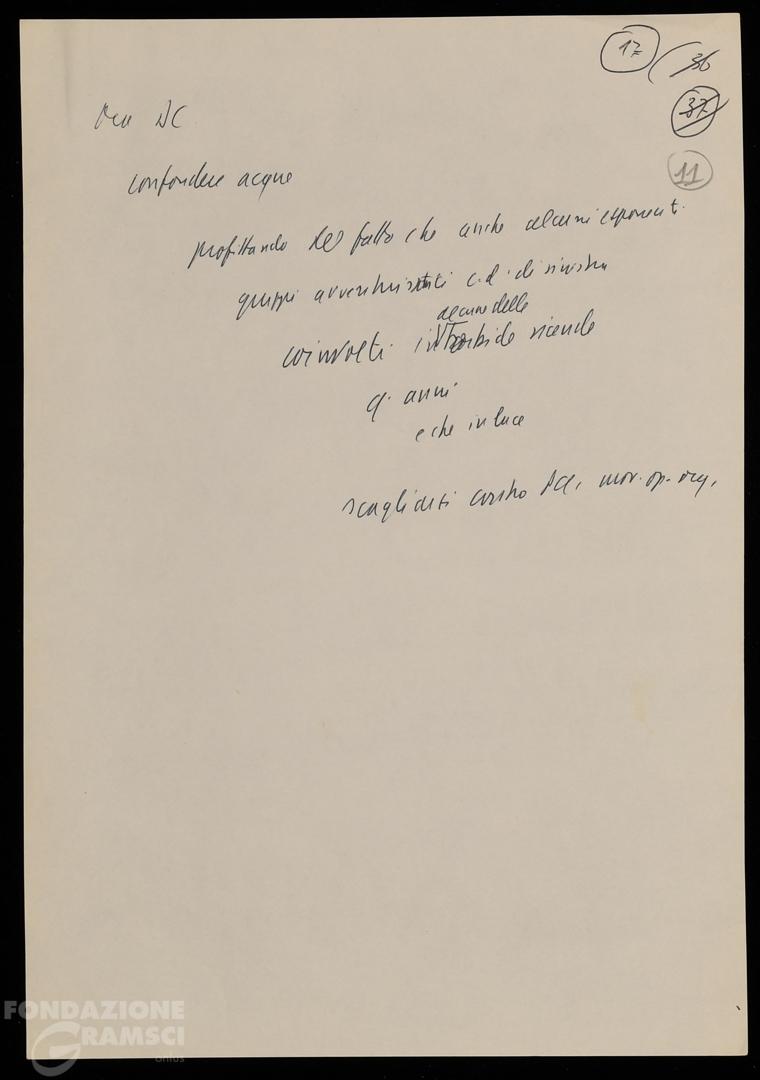 17
36
37
11
Ora DC
confondere acque
profittando del fatto che anche alcuni esponenti
gruppi avventuristici c.d. di sinistra
alcune delle
coinvolti in torbide vicende
q. anni
e che in luce
scagliarsi contro PCI, mov. op. org.
FONDAZIONE
GRAMSCI
onlus